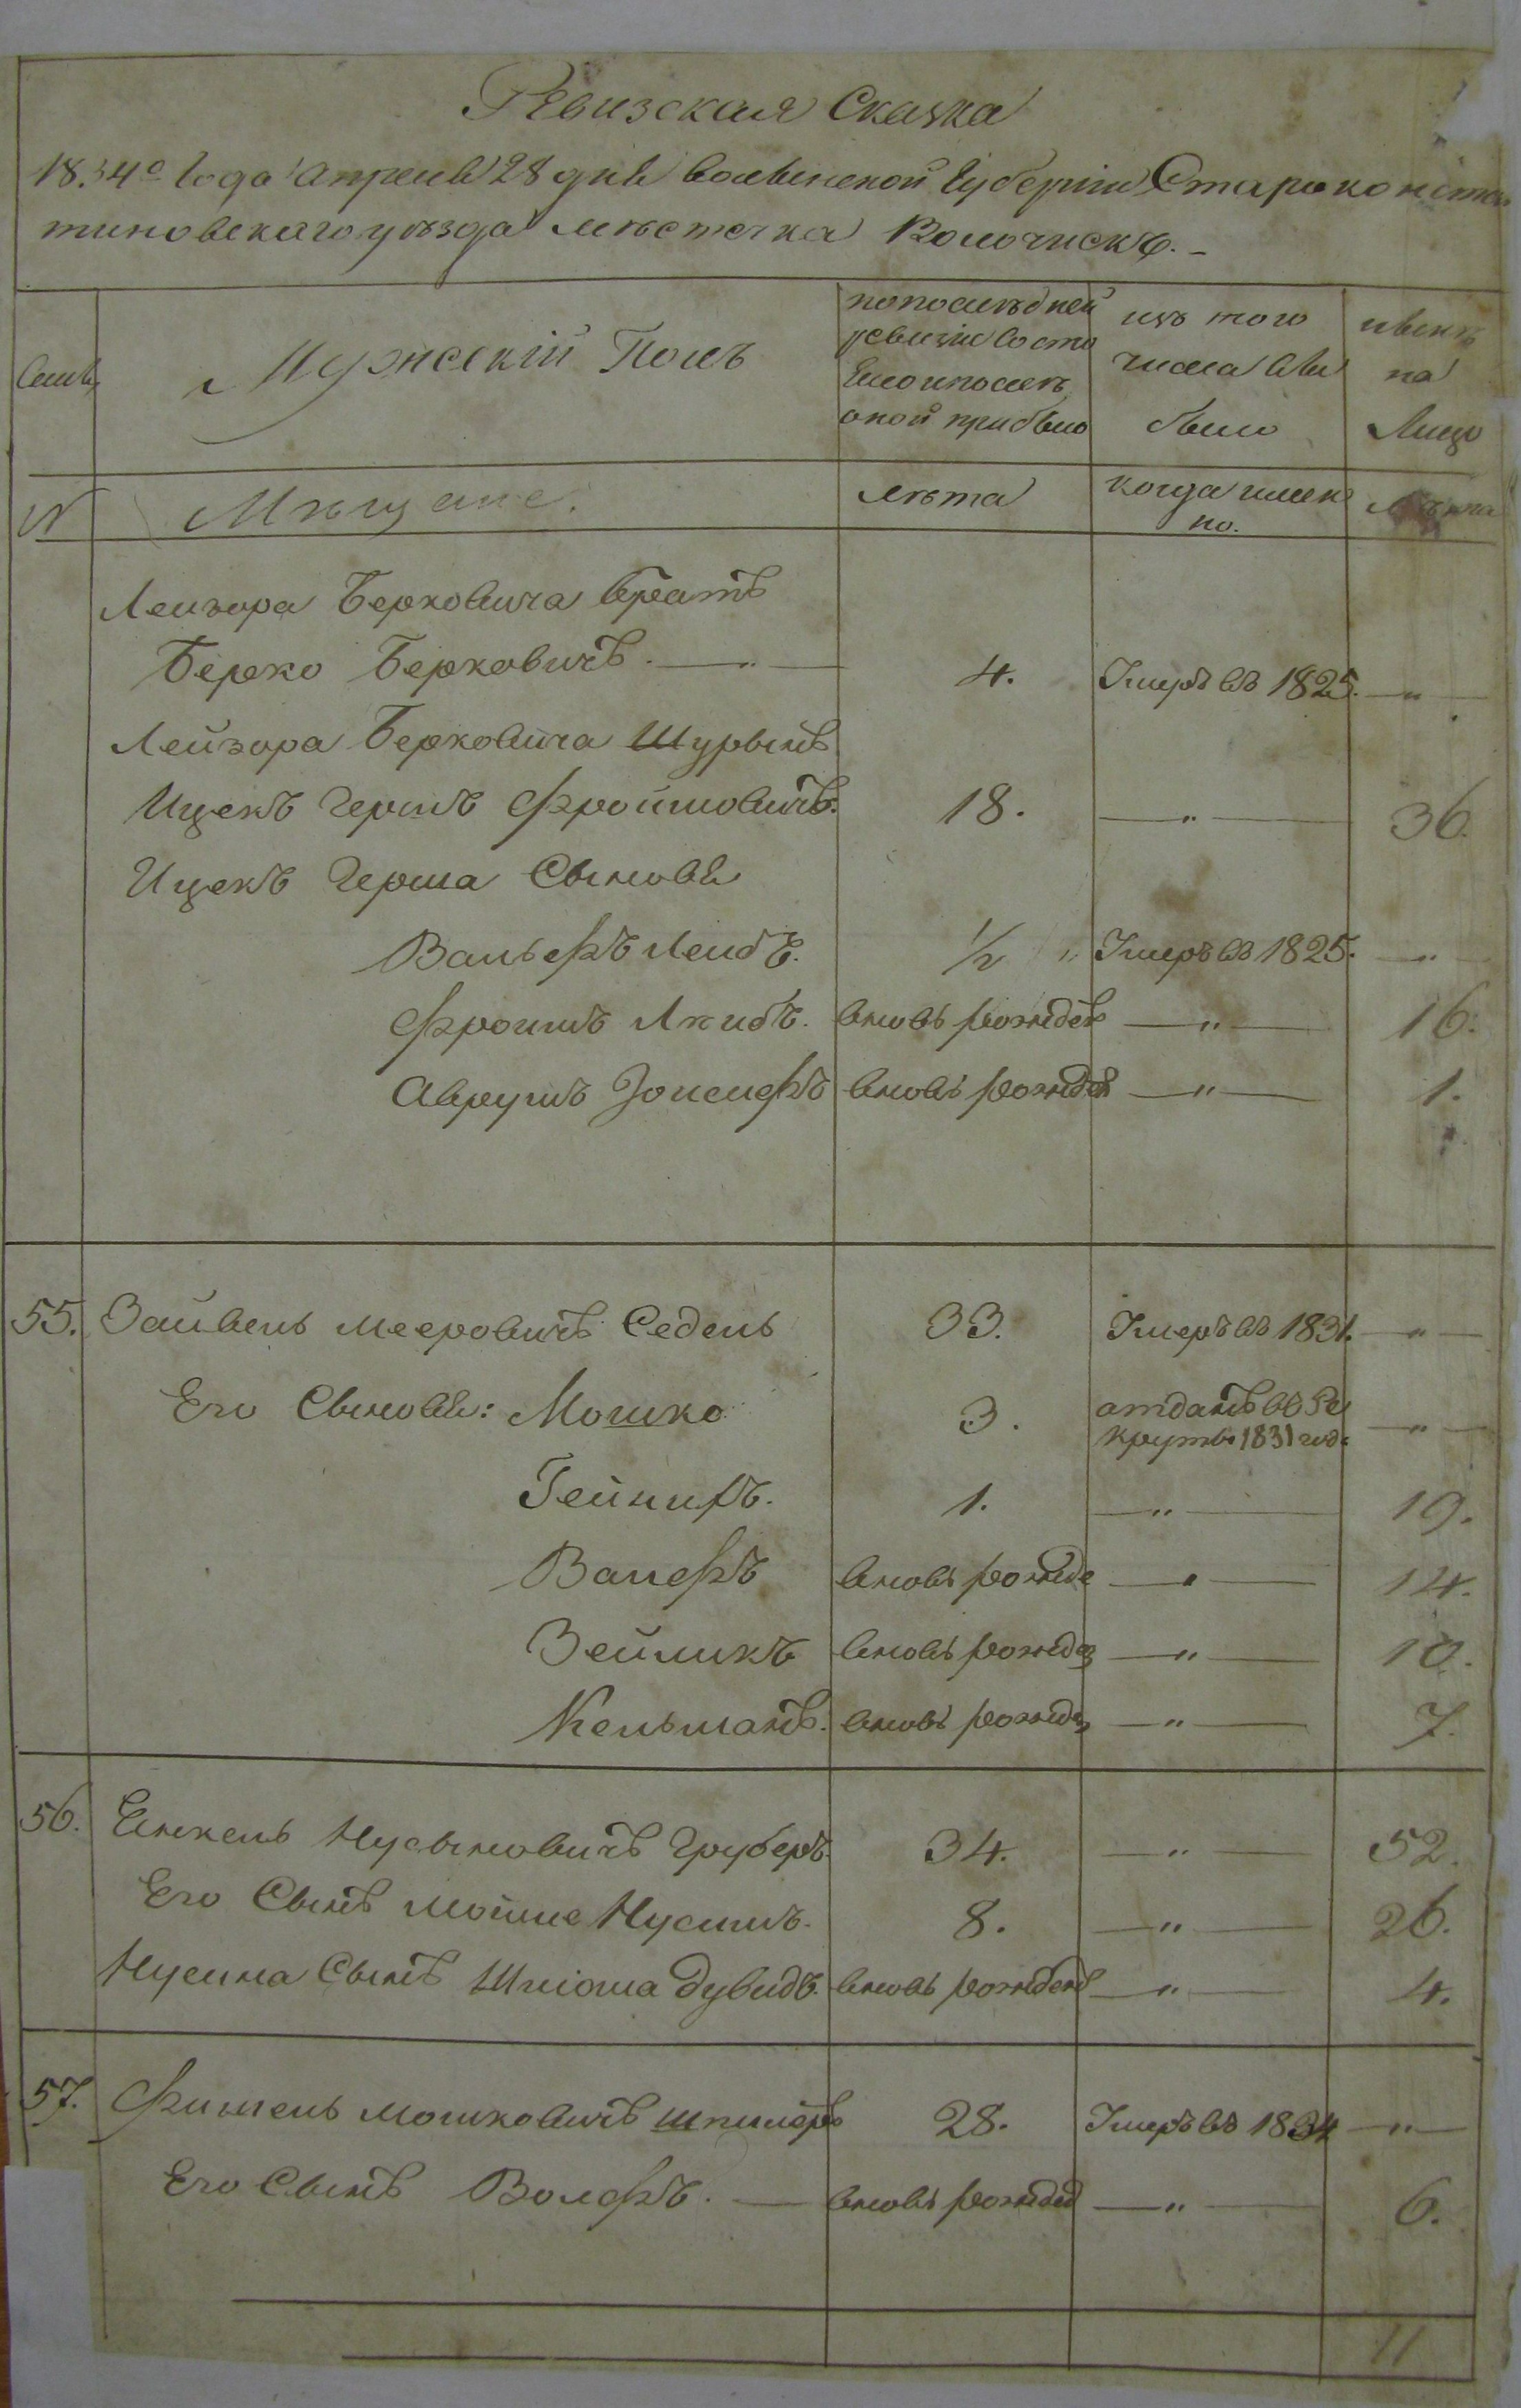 Ревизская Сказка
1834го Года Апреля 28 дня Волынской Губернии Старо констан
тиновскаго уѣзда мѣстечка Волочискъ.
Семьи
Мужскій Полъ
по послѣдней
ревизіи состо
яло и послѣ
оной прибыло
изъ того
числа вы
было
нынѣ
на
лицо
№
Мѣщане.
лѣта
когда имен
но.
лѣта
Лейзора Берковича братъ
Берко Берковичъ. — „ — 4. Умеръ въ 1825. — „ —
Лейзора Берковича Шурынъ
Ицекъ Гершъ Фроимовичъ. 18. — „ — 36.
Ицекъ Герша Сыновья
Вальфъ Лейбъ. 1/2 „ Умеръ въ 1825. — „ —
Фроимъ Лейбъ. вновь рожденъ — „ — 16.
Аврумъ Іонсифъ вновь рожден — „ — 1.
55. Зайвель Мееровичъ Седель 33. Умеръ въ 1831. — „ —
Его Сыновья: Мошко 3. отданъ въ Ре
круты 1831 года — „ —
Гейнихъ. 1. — „ — 19.
Ванефъ вновь рожде — „ — 14.
Зейликъ вновь рожде — „ — 10.
Кельманъ. вновь рожде — „ — 7.
56. Янкель Нусыновичъ Груберъ. 34. — „ — 52.
Его Сынъ Мойше Нусинъ. 8. — „ — 26.
Нусина Сынъ Шліома Дувидъ. вновь рожденъ — „ — 4.
57. Фишель Мошковичъ Шпилеръ 28. Умеръ въ 1834 — „ —
Его Сынъ Волефъ. — вновь рожден — „ — 6.
11